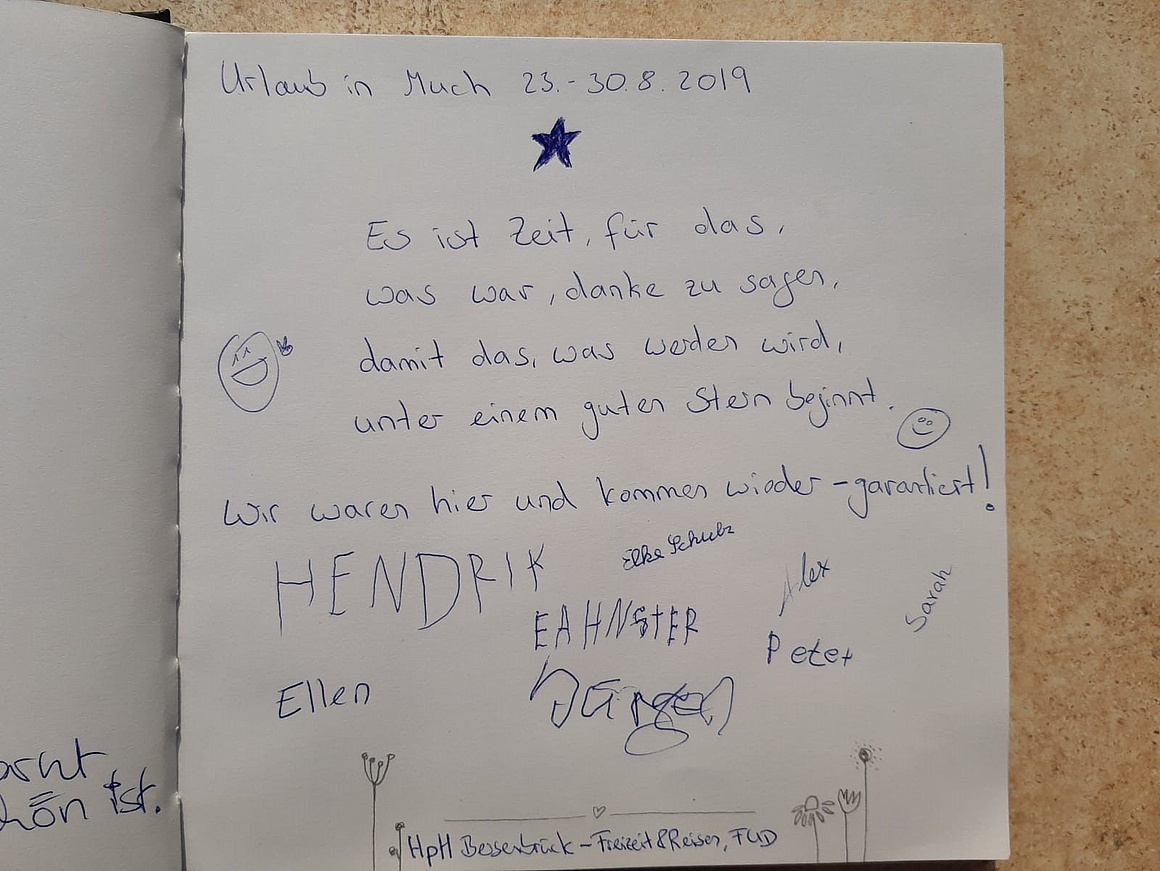 Urlaub in Much 23.-30.8.2019
Es ist Zeit, für das,
was war, danke zu sagen,
damit das, was werden wird,
unter einem guten Stern beginnt.
Wir waren hier und kommen wieder - garantiert!
HENDRIK
Elke Schulz
Alex
Sarah
EAHNSTER
Peter
Ellen
Jürgen
HpH Bersenbrück - Freizeit & Reisen, FUD
hön ist.